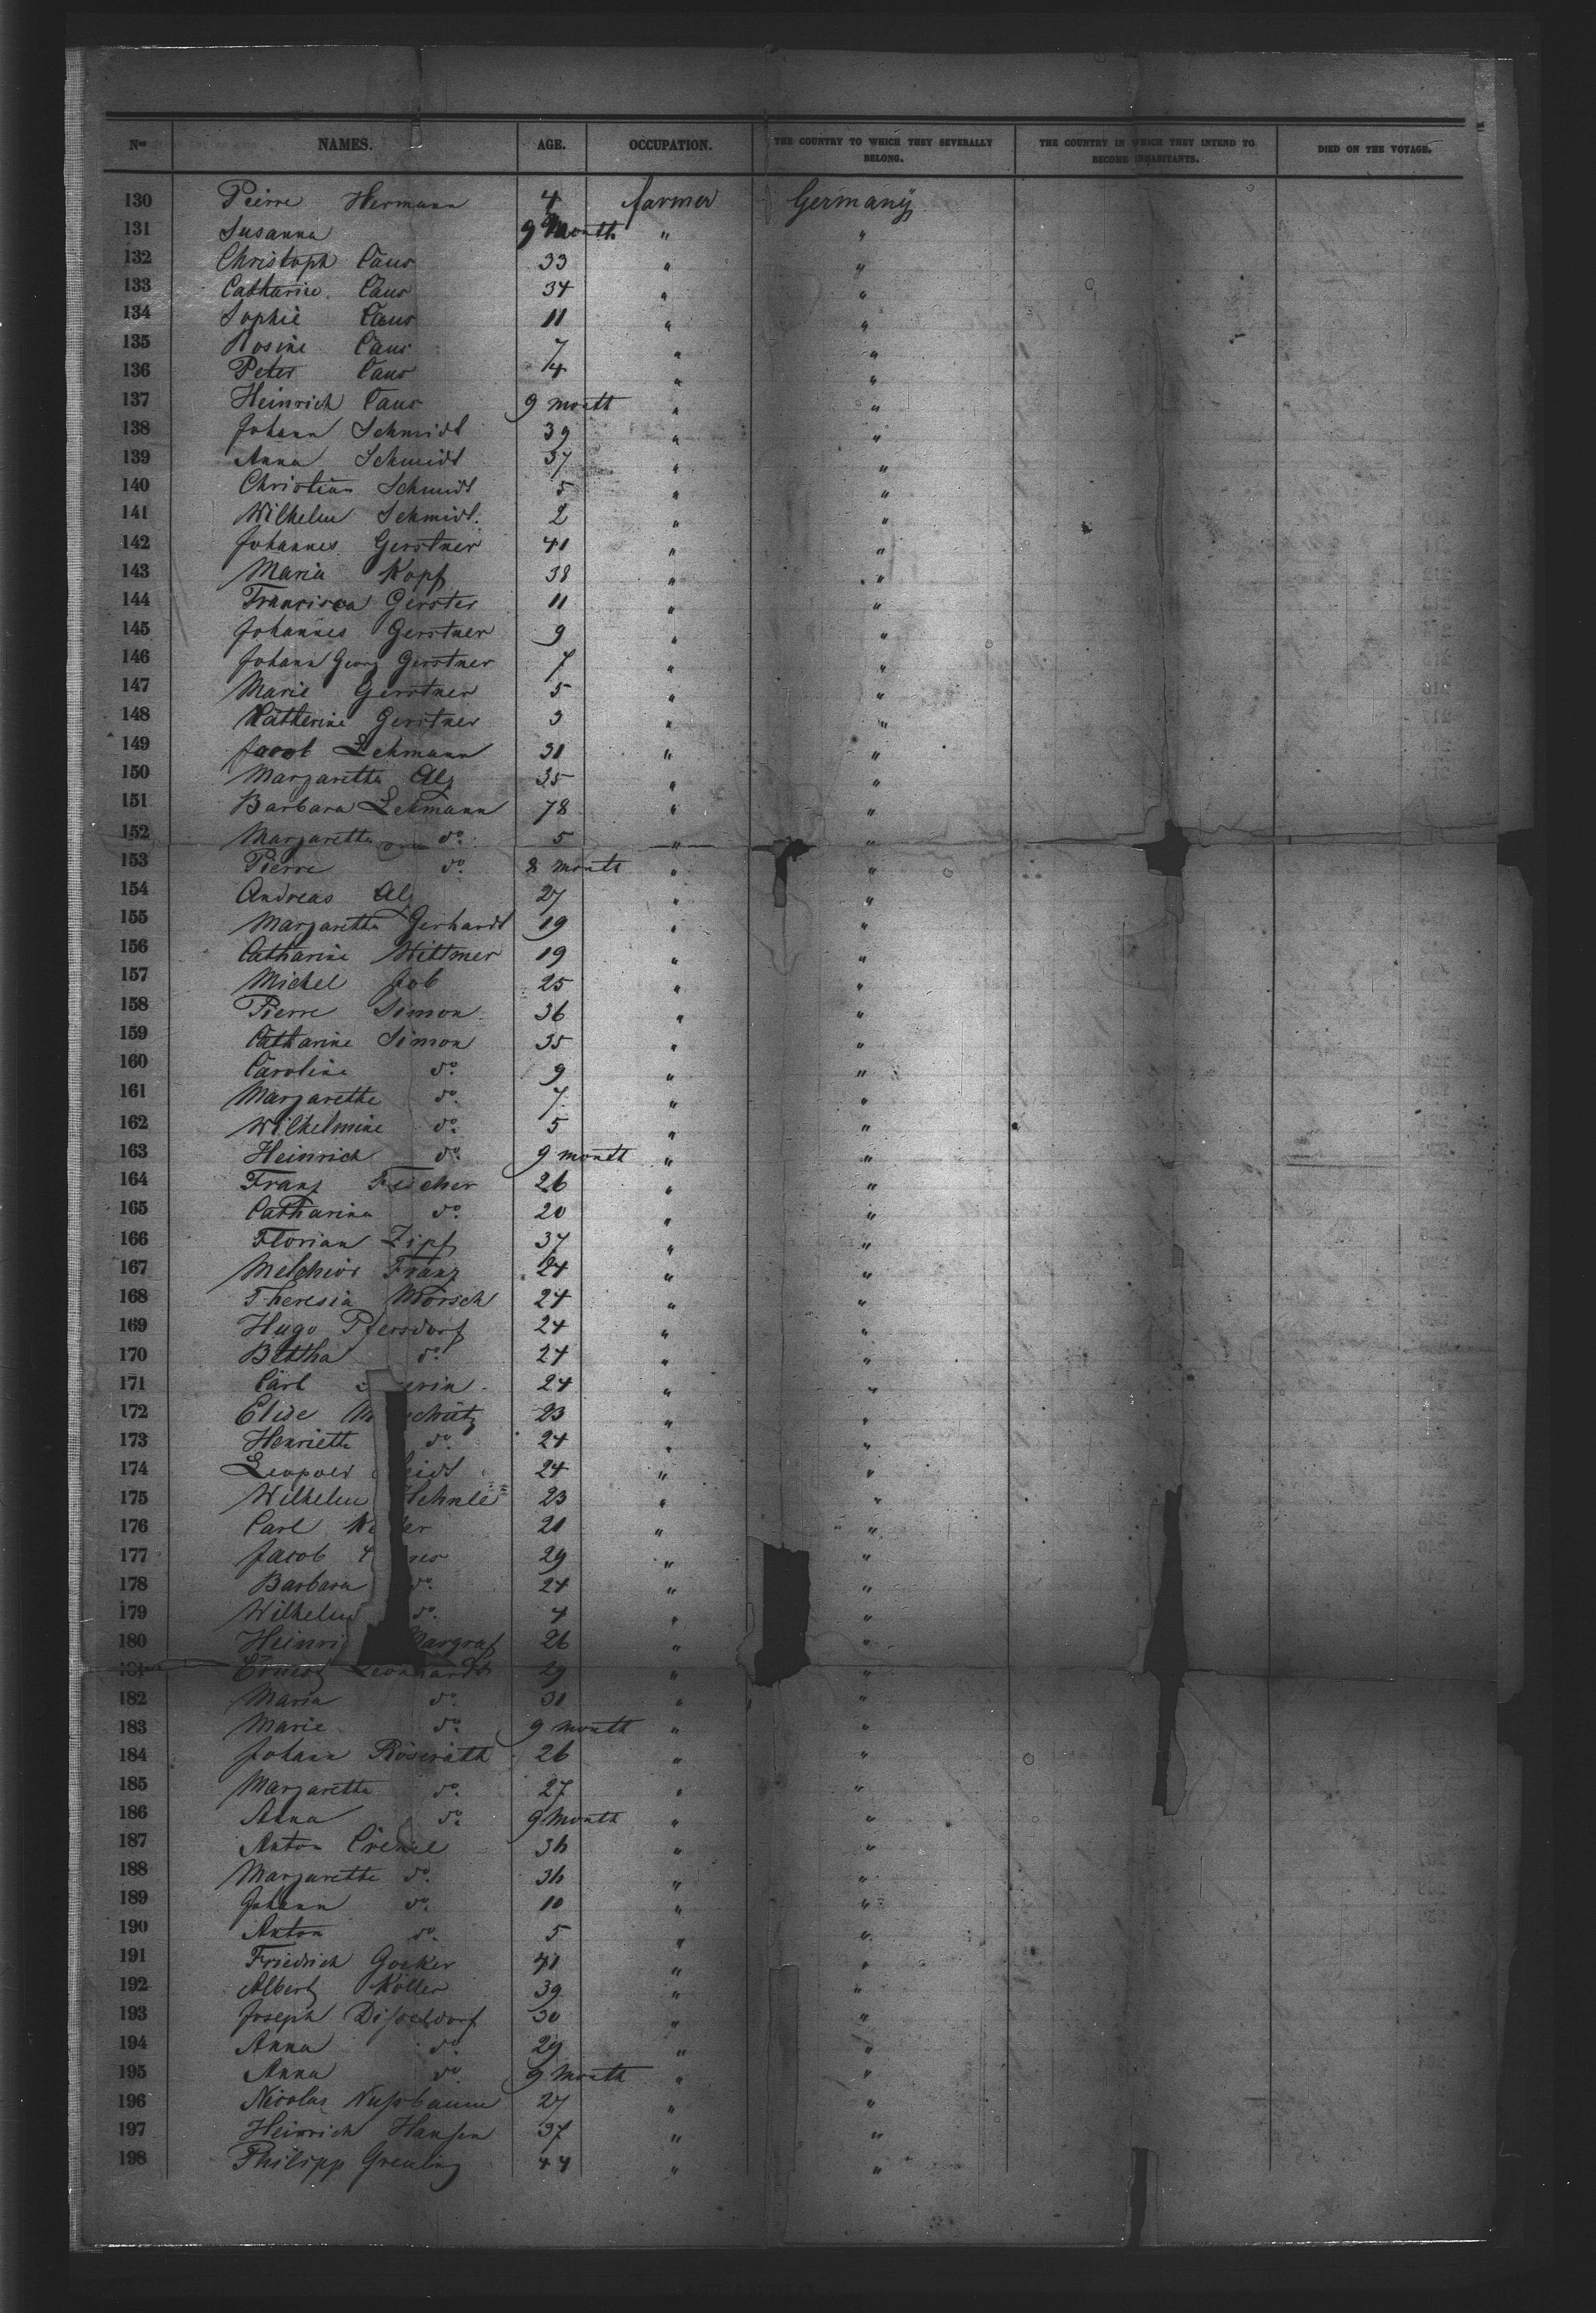 Nos NAMES. AGE. OCCUPATION. THE COUNTRY TO WHICH THEY SEVERALLY BELONG. THE COUNTRY IN WHICH THEY INTEND TO BECOME INHABITANTS. DIED ON THE VOYAGE.
130 Pierre Hermann 4 farmer Germany
131 Susanna 9 month " "
132 Christoph Caus 33 " "
133 Catharine Caus 34 " "
134 Sophie Caus 11 " "
135 Rosine Caus 7 " "
136 Peter Caus 4 " "
137 Heinrich Caus 9 month " "
138 Johann Schmidt 39 " "
139 Anna Schmidt 37 " "
140 Christian Schmidt 5 " "
141 Wilhelm Schmidt 2 " "
142 Johannes Gerstner 41 " "
143 Maria Kopf 38 " "
144 Francisca Gerster 11 " "
145 Johannes Gerstner 9 " "
146 Johann Georg Gerstner 7 " "
147 Marie Gerstner 5 " "
148 Katherine Gerstner 3 " "
149 Jacob Lehmann 31 " "
150 Margaretha 35 " "
151 Barbara Lehmann 78 " "
152 Margaretha do. 5 " "
153 Pierre do. 8 month " "
154 Andreas 27 " "
155 Margaretha Gerhardt 19 " "
156 Catharine Wittmer 19 " "
157 Michel Job 25 " "
158 Pierre Simon 36 " "
159 Catharine Simon 35 " "
160 Caroline do. 9 " "
161 Margarethe do. 7 " "
162 Wilhelmine do. 5 " "
163 Heinrich do. 9 month " "
164 Franz 26 " "
165 Catharina do. 20 " "
166 Florian Zipf 37 " "
167 Melchior Franz 24 " "
168 Theresia Morsch 24 " "
169 Hugo Pfersdorf 24 " "
170 Bertha do. 24 " "
171 Carl 24 " "
172 Elise 23 " "
173 Henriette do. 24 " "
174 Leopold 24 " "
175 Wilhelm 23 " "
176 Carl 21 " "
177 Jacob 29 " "
178 Barbara do. 24 " "
179 Wilhelm do. 4 " "
180 Margraf 26 " "
181 Leonhardt 29 " "
182 Maria do. 31 " "
183 Marie do. 9 month " "
184 Johann Röserath 26 " "
185 Margaretha do. 27 " "
186 Anna do. 9 month " "
187 Anton 36 " "
188 Margarethe do. 36 " "
189 Johann do. 10 " "
190 Anton do. 5 " "
191 Friedrich Goeker 41 " "
192 Albert Köller 39 " "
193 Joseph Disseldorf 30 " "
194 Anna do. 29 " "
195 Anna do. 9 month " "
196 Nicolas Nussbaum 27 " "
197 Heinrich Hansen 37 " "
198 Philipp Greuling 44 " "